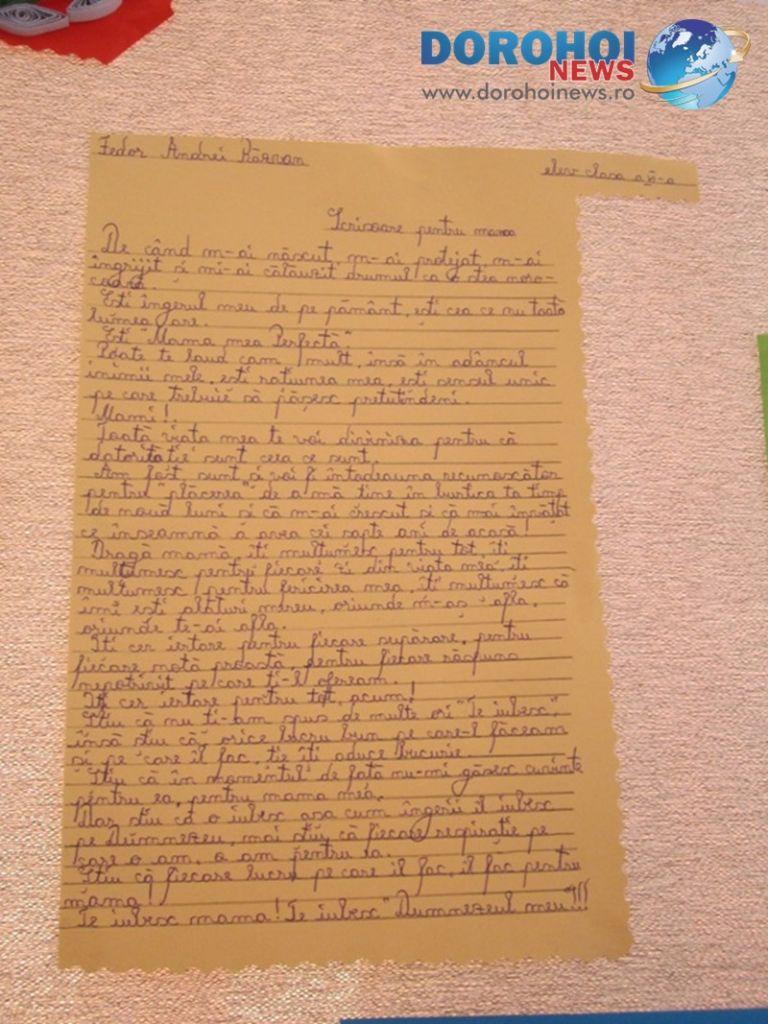 DOROHOI
NEWS
www.dorohoinews.ro
Fedor Andrei Răzvan
elev clasa a VI-a
Scrisoare pentru mama
De când m-ai născut, m-ai protejat, m-ai
îngrijit si mi-ai călăuzit drumul ca o stea noro-
coasă.
Esti îngerul meu de pe pământ, esti cea ce nu toată
lumea are.
Esti "Mama mea Perfectă".
Poate te laud cam mult, însă în adâncul
inimii mele, esti ratiunea mea, esti sensul unic
pe care trebuie să păsesc pretutindeni.
Mami!
Toată viata mea te voi diviniza pentru că
datorită tie sunt ceea ce sunt.
Am fost, sunt si voi fi întodeauna recunoscător
pentru "plăcerea" de a mă tine în burtica ta timp
de nouă luni si că m-ai crescut si că mai învătat
ce înseamnă a avea cei sapte ani de acasă!
Dragă mamă, iti multumesc pentru tot, iti
multumesc pentru fiecare zi din viata mea, iti
multumesc pentru fericirea mea, iti multumesc că
îmi esti alături mereu, oriunde m-as afla,
oriunde te-ai afla.
Iti cer iertare pentru fiecare supărare, pentru
fiecare notă proastă, pentru fiecare răspuns
nepotrivit pe care ti-l ofeream.
Iti cer iertare pentru tot, acum!
Stiu că nu ti-am spus de multe ori "Te iubesc",
însă stiu că orice lucru bun pe care-l făceam
si pe care îl fac, tie îti aduce bucurie.
Stiu că în momentul de fată nu-mi găsesc cuvinte
pentru ea, pentru mama mea.
Dar stiu că o iubesc asa cum îngerii îl iubesc
pe Dumnezeu, mai stiu că fiecare respiratie pe
care o am, o am pentru ea.
Stiu că fiecare lucru pe care îl fac, îl fac pentru
mama!
Te iubesc mama! Te iubesc "Dumnezeul meu"!!!